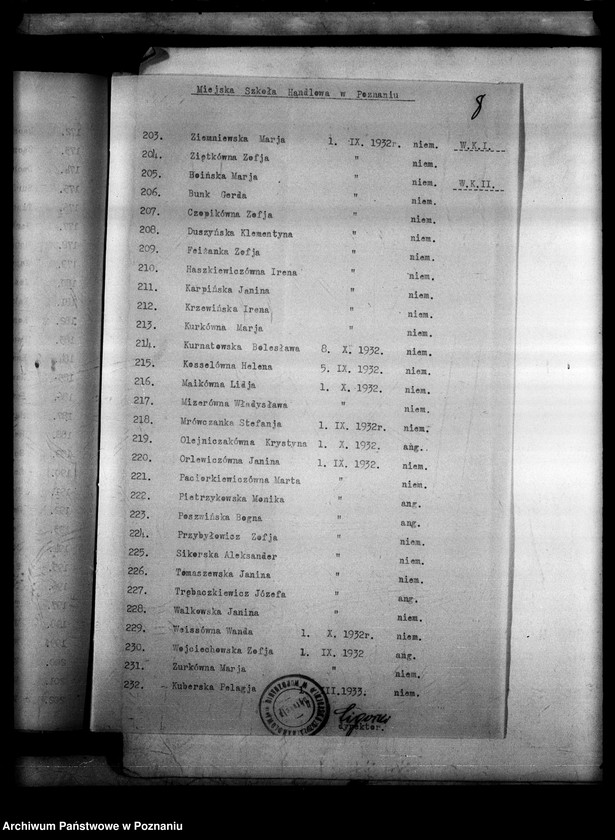 Miejska Szkoła Handlowa w Poznaniu
8
203. Ziemniewska Marja 1. IX. 1932r. niem. W.K.I.
204. Ziętkówna Zofja " niem.
205. Hoińska Marja " niem. W.K.II.
206. Bunk Gerda " niem.
207. Czopikówna Zofja " niem.
208. Duszyńska Klementyna " niem.
209. Feiżanka Zofja " niem.
210. Haszkiewiczówna Irena " niem.
211. Karpińska Janina " niem.
212. Krzewińska Irena " niem.
213. Kurkówna Marja " niem.
214. Kurnatowska Bolesława 8. X. 1932. niem.
215. Kosselówna Helena 5. IX. 1932. niem.
216. Maikówna Lidja 1. X. 1932. niem.
217. Mizerówna Władysława " niem.
218. Mrówczanka Stefanja 1. IX. 1932r. niem.
219. Olejniczakówna Krystyna 1. X. 1932. ang.
220. Orlewiczówna Janina 1. IX. 1932. niem.
221. Paciorkiewiczówna Marta " niem.
222. Pietrzykowska Monika " ang.
223. Poszwińska Bogna " ang.
224. Przybyłowicz Zofja " niem.
225. Sikorska Aleksander " niem.
226. Tomaszewska Janina " niem.
227. Trębaczkiewicz Józefa " ang.
228. Walkowska Janina " niem.
229. Weissówna Wanda 1. X. 1932r. niem.
230. Wojciechowska Zofja 1. IX. 1932 ang.
231. Żurkówna Marja " niem.
232. Kuberska Pelagja III.1933. niem.
dyrektor.
Archiwum Państwowe w Poznaniu